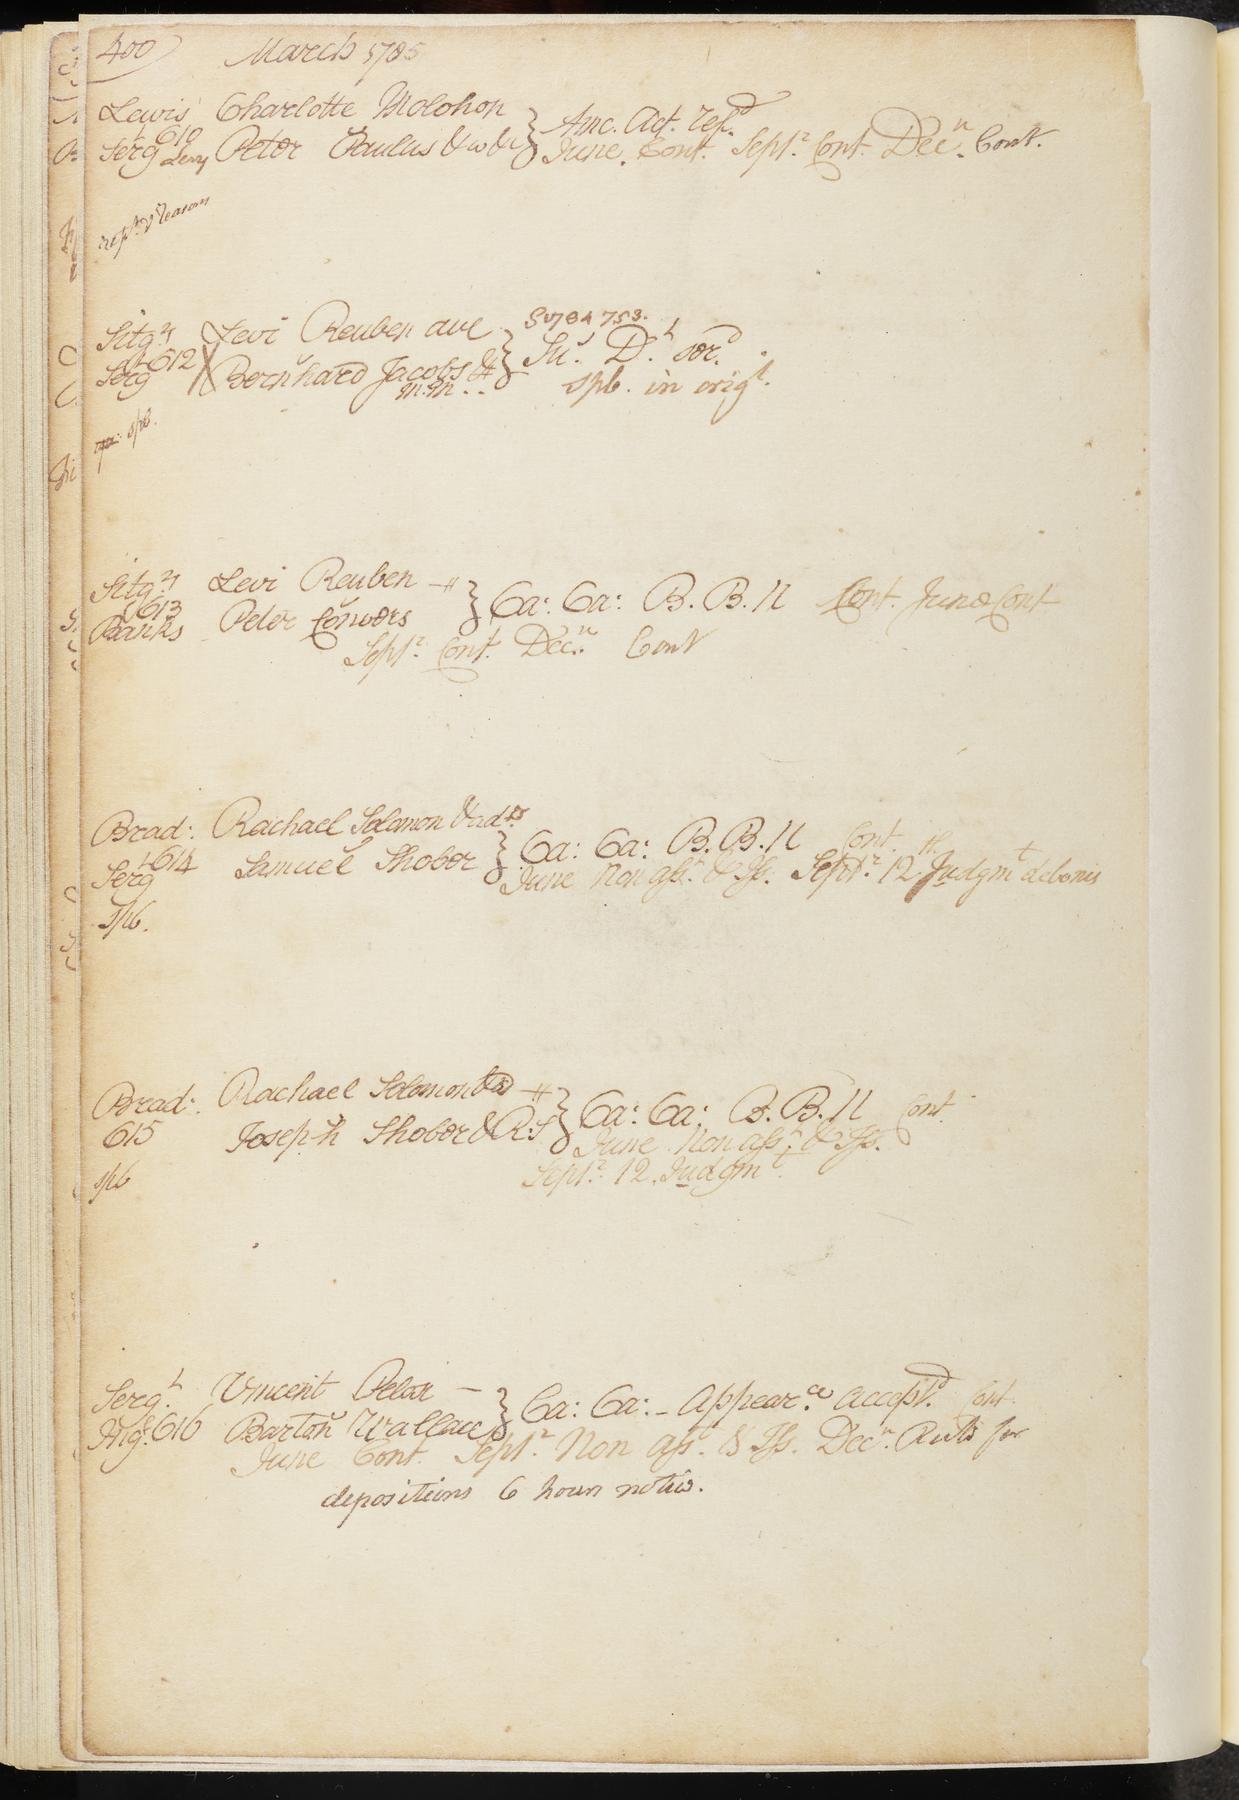 400 March 1785
Lewis Charlotte Molohon
Serg.t 610 Levy Peter Paulus & wife } Amc. Act. Ref.d
June. Cont. Sept.r Cont. Dec.r Cont.
Sitg.s Levi Reuben
Serg.t 612 Bernhard Jacobs } Su.r D.t sor.d
S 0784 753.
spb. in orig.l
spb.
Sitg.s Levi Reuben
613 Banks Peter Convers } Ca: Ca: B. B. H Cont. June Cont
Sept.r Cont. Dec.r Cont
Brad: Rachael Solomon & ad.rs
Serg.t 614 Samuel Shober } Ca: Ca: B. B. H Cont.
June Non ass.t & Iss. Sept.r 12.th Judgm.t de bonis
spb.
Brad: Rachael Solomon
615 Joseph Shober & R:S } Ca: Ca: B. B. H Cont
June Non ass.t & Iss.
spb Sept.r 12. Judgm.t
Serg.t Vincent Pelosi
616 Barton Wallace } Ca: Ca: - Appear.ce accept.d Cont.
June Cont. Sept.r Non ass.t & Iss. Dec.r Rule for
depositions 6 hours notice.